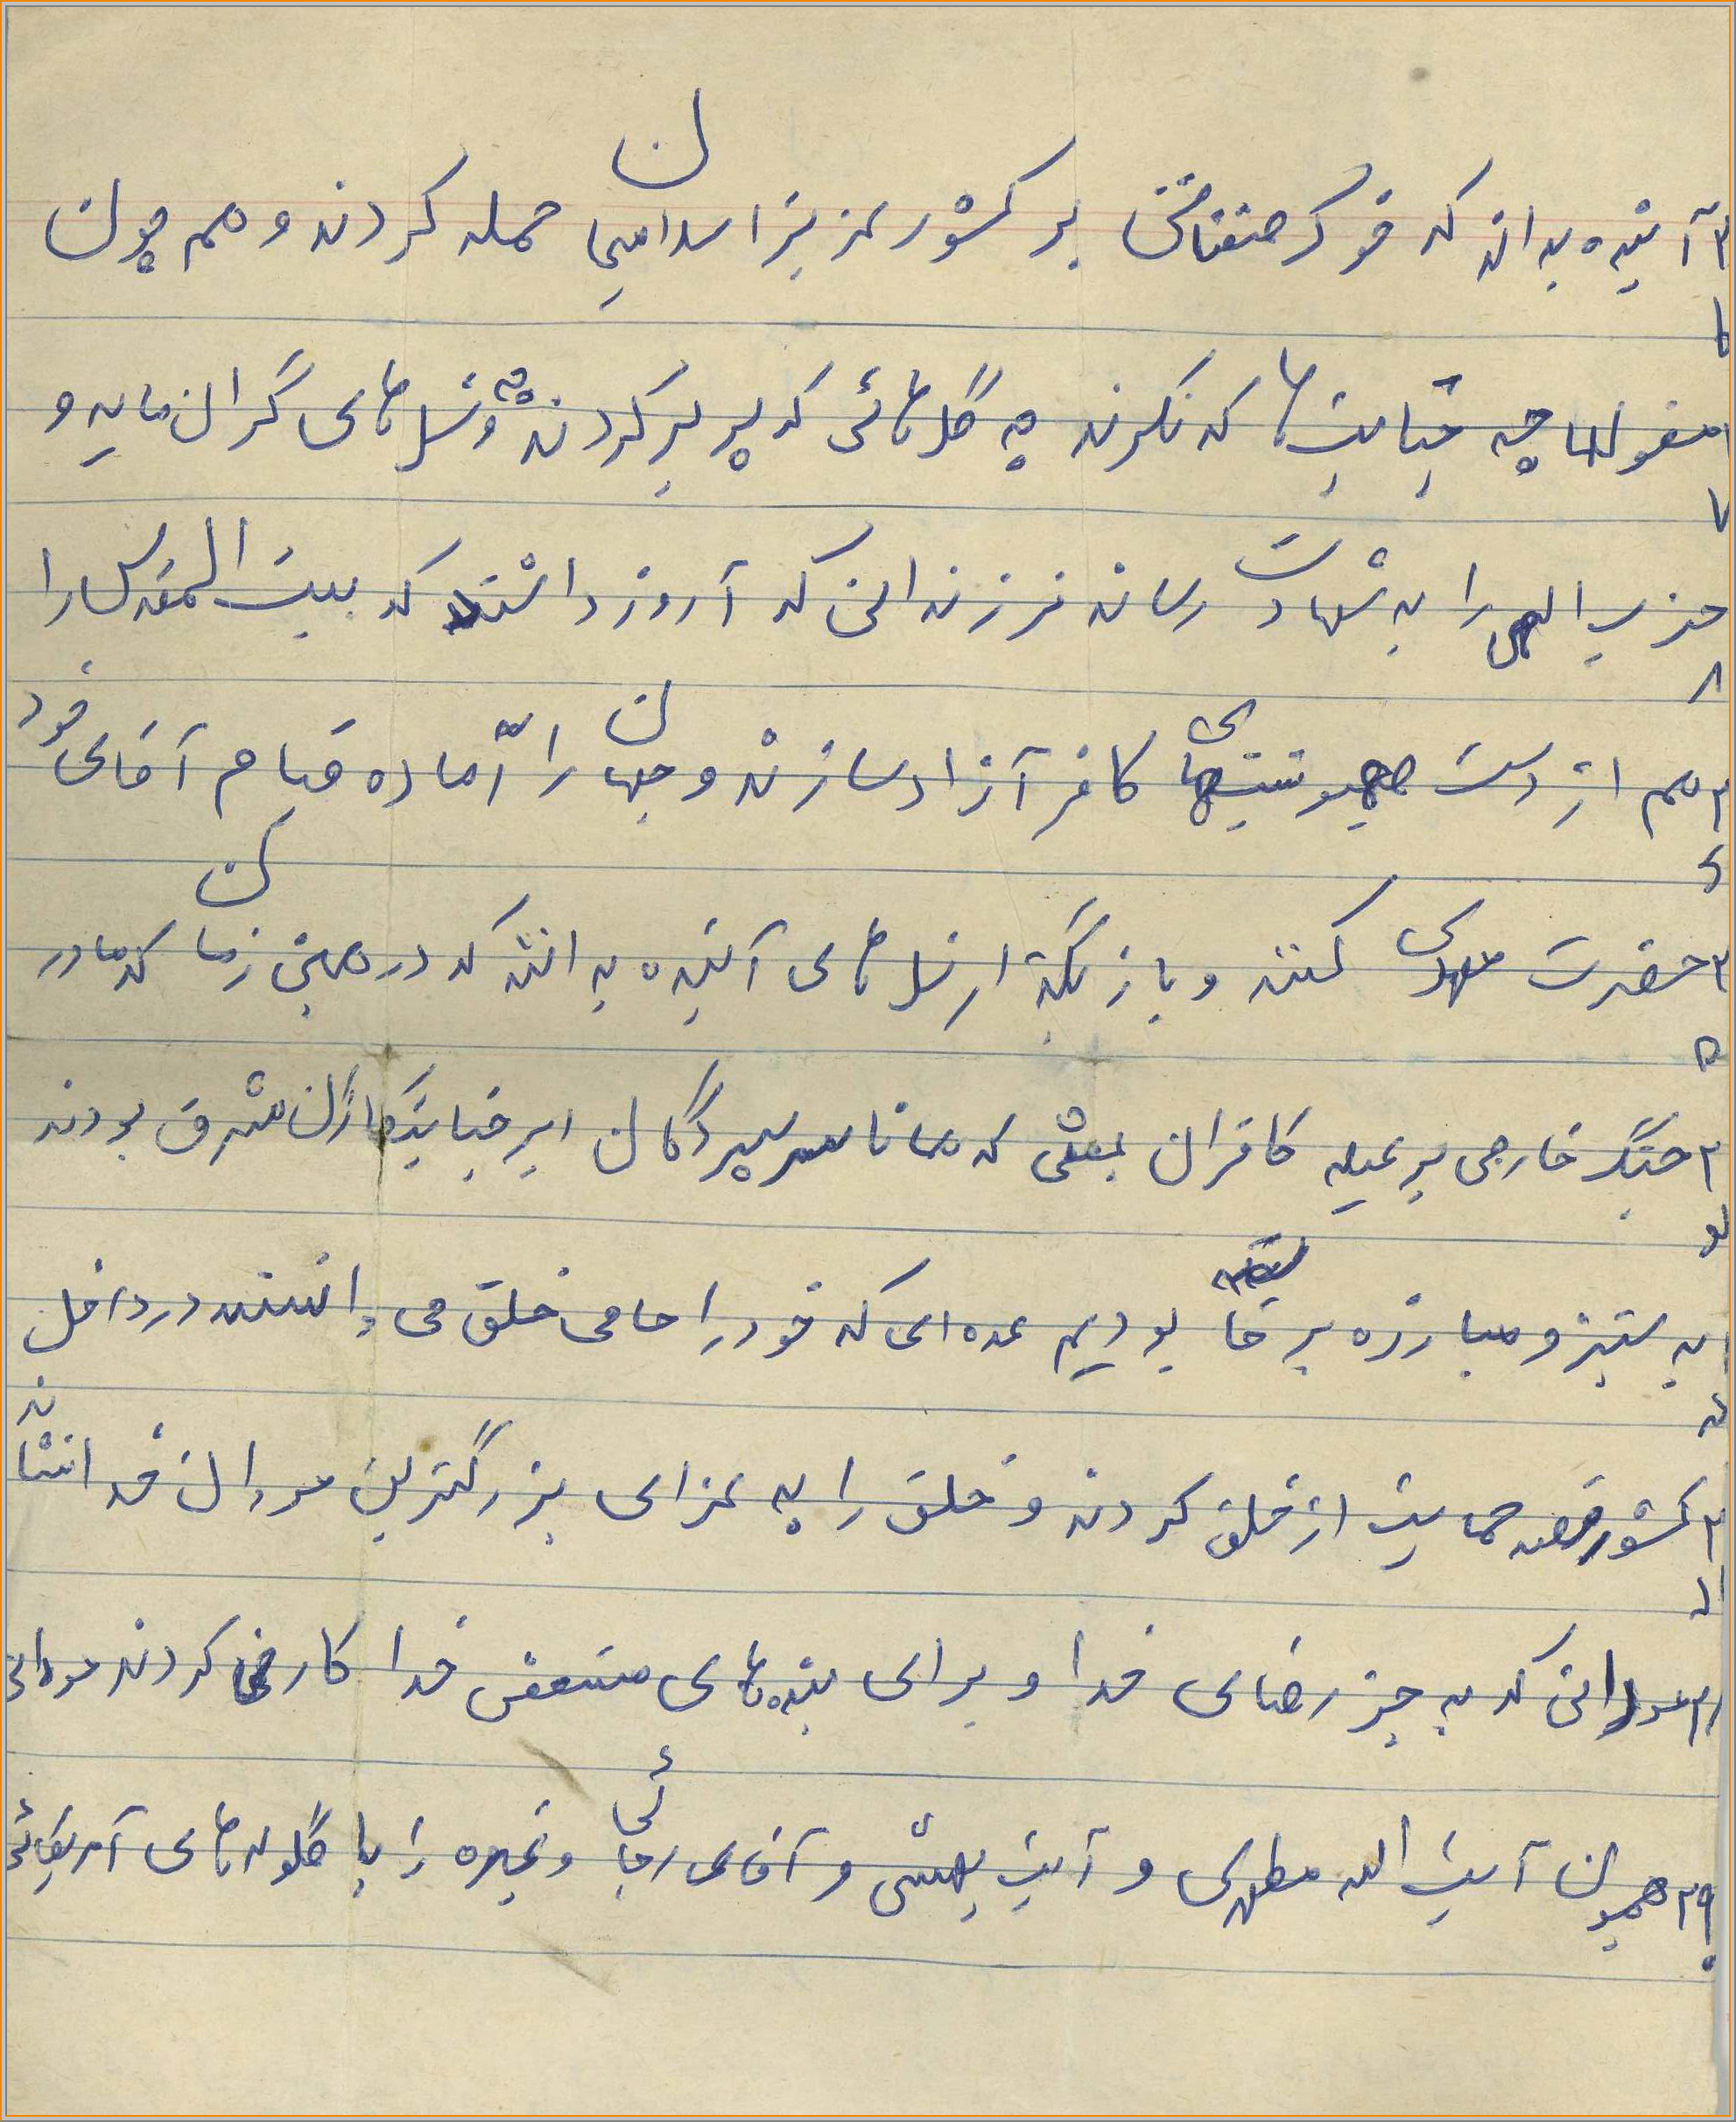 آینده بدانند که خوک صفتانی بر کشور عزیز اسلامیمان حمله کردند و هم چون
مغولها چه جنایتها که نکردند چه گل هائی که پرپر کردند و چه نسل های گران مایه و
حزب الهی را به شهادت رساند فرزندانی که آروز داشتند که بیت المقدس را
هم از دست صهیونیستهای کافر آزاد سازند و جهان را آماده قیام آقای خود
حضرت مهدی کنند و باز نگذار نسل های آینده بدانند که در همین زمان که ما در
جنگ خارجی بر علیه کافران بعثی که همانا سرسپردگان ابر جنایتکاران شرق بودند
به ستیز و مبارزه بر خا بودیم عده ای که خود را حامی خلق می دانستند در داخل
کشور قصد حمایت از خلق کردند و خلق را به عزای بزرگترین مردان خدا نشاندند
مردانی که به جز رضای خدا و برای بنده های مستعفن خدا کار نمی کردند مردانی
همچون آیت الله مطهری و آیت بهشتی و آقای رجائی و غیره را با گلوله های آمریکائی